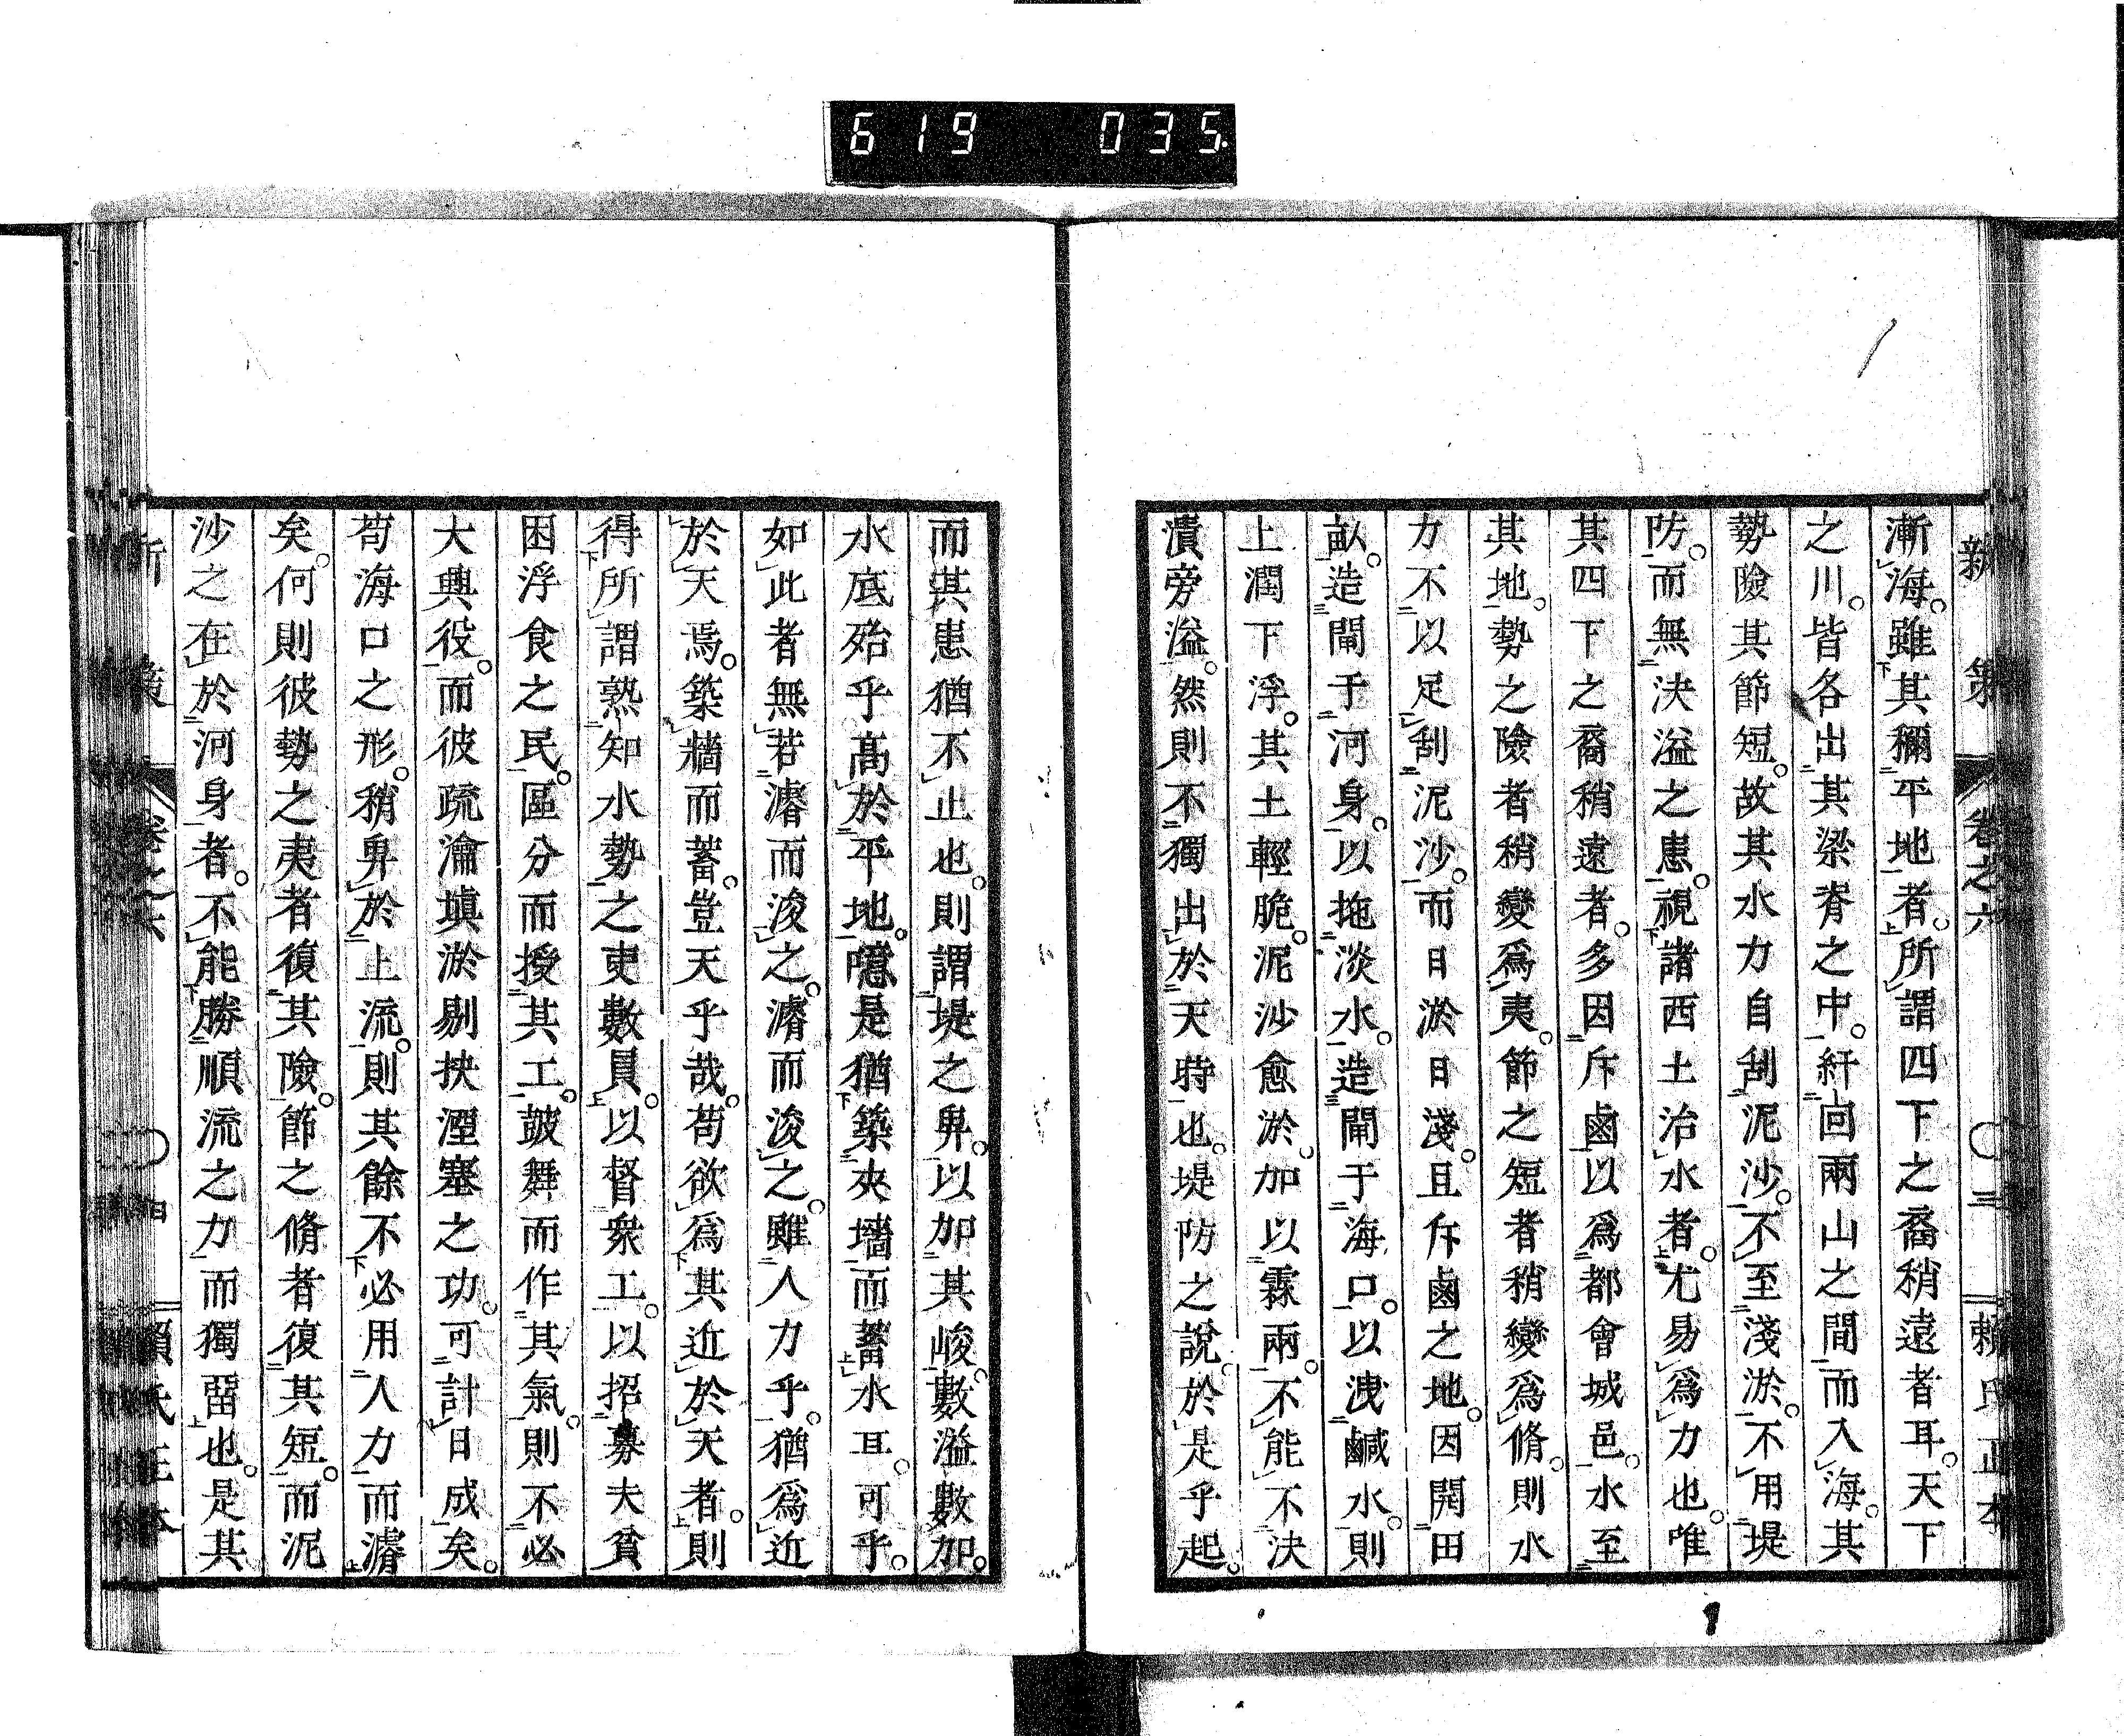 619 035
新策 卷之六 〇三 賴氏正本
漸海。雖其穪平地者。所謂四下之裔稍遠者耳。天下
之川。皆各出其梁脊之中。紆回兩山之間而入海。其
勢險其節短。故其水力自刮泥沙。不至淺淤。不用堤
防。而無決溢之患。視諸西土治水者。尤易爲力也。唯
其四下之裔稍遠者。多因斥鹵以爲都會城邑。水至
其地。勢之險者稍變爲夷。節之短者稍變爲脩。則水
力不以足刮泥沙。而日淤日淺。且斥鹵之地。因開田
畝。造閘于河身。以拖淡水。造閘于海口。以洩鹹水。則
上潤下浮。其土輕脆。泥沙愈淤。加以霖雨。不能不決
潰旁溢。然則不獨出於天時也。堤防之說。於是乎起。
而其患猶不止也。則謂堤之卑。以加其峻。數溢數加。
水底殆乎高於平地。噫是猶築夾墻而蓄水耳。可乎。
如此者無若濬而浚之。濬而浚之。雖人力乎。猶爲近
於天焉。築牆而蓄。豈天乎哉。苟欲爲其近於天者。則
得所謂熟知水勢之吏數員。以督衆工。以招募夫貧
困浮食之民。區分而授其工。鼓舞而作其氣。則不必
大興役。而彼疏瀹塡淤剔抉湮塞之功。可計日成矣。
苟海口之形。稍卑於上流。則其餘不必用人力而濬
矣。何則彼勢之夷者復其險。節之脩者復其短。而泥
沙之在於河身者。不能勝順流之力而獨畱也。是其
新策 卷之六 〇四 賴氏正本